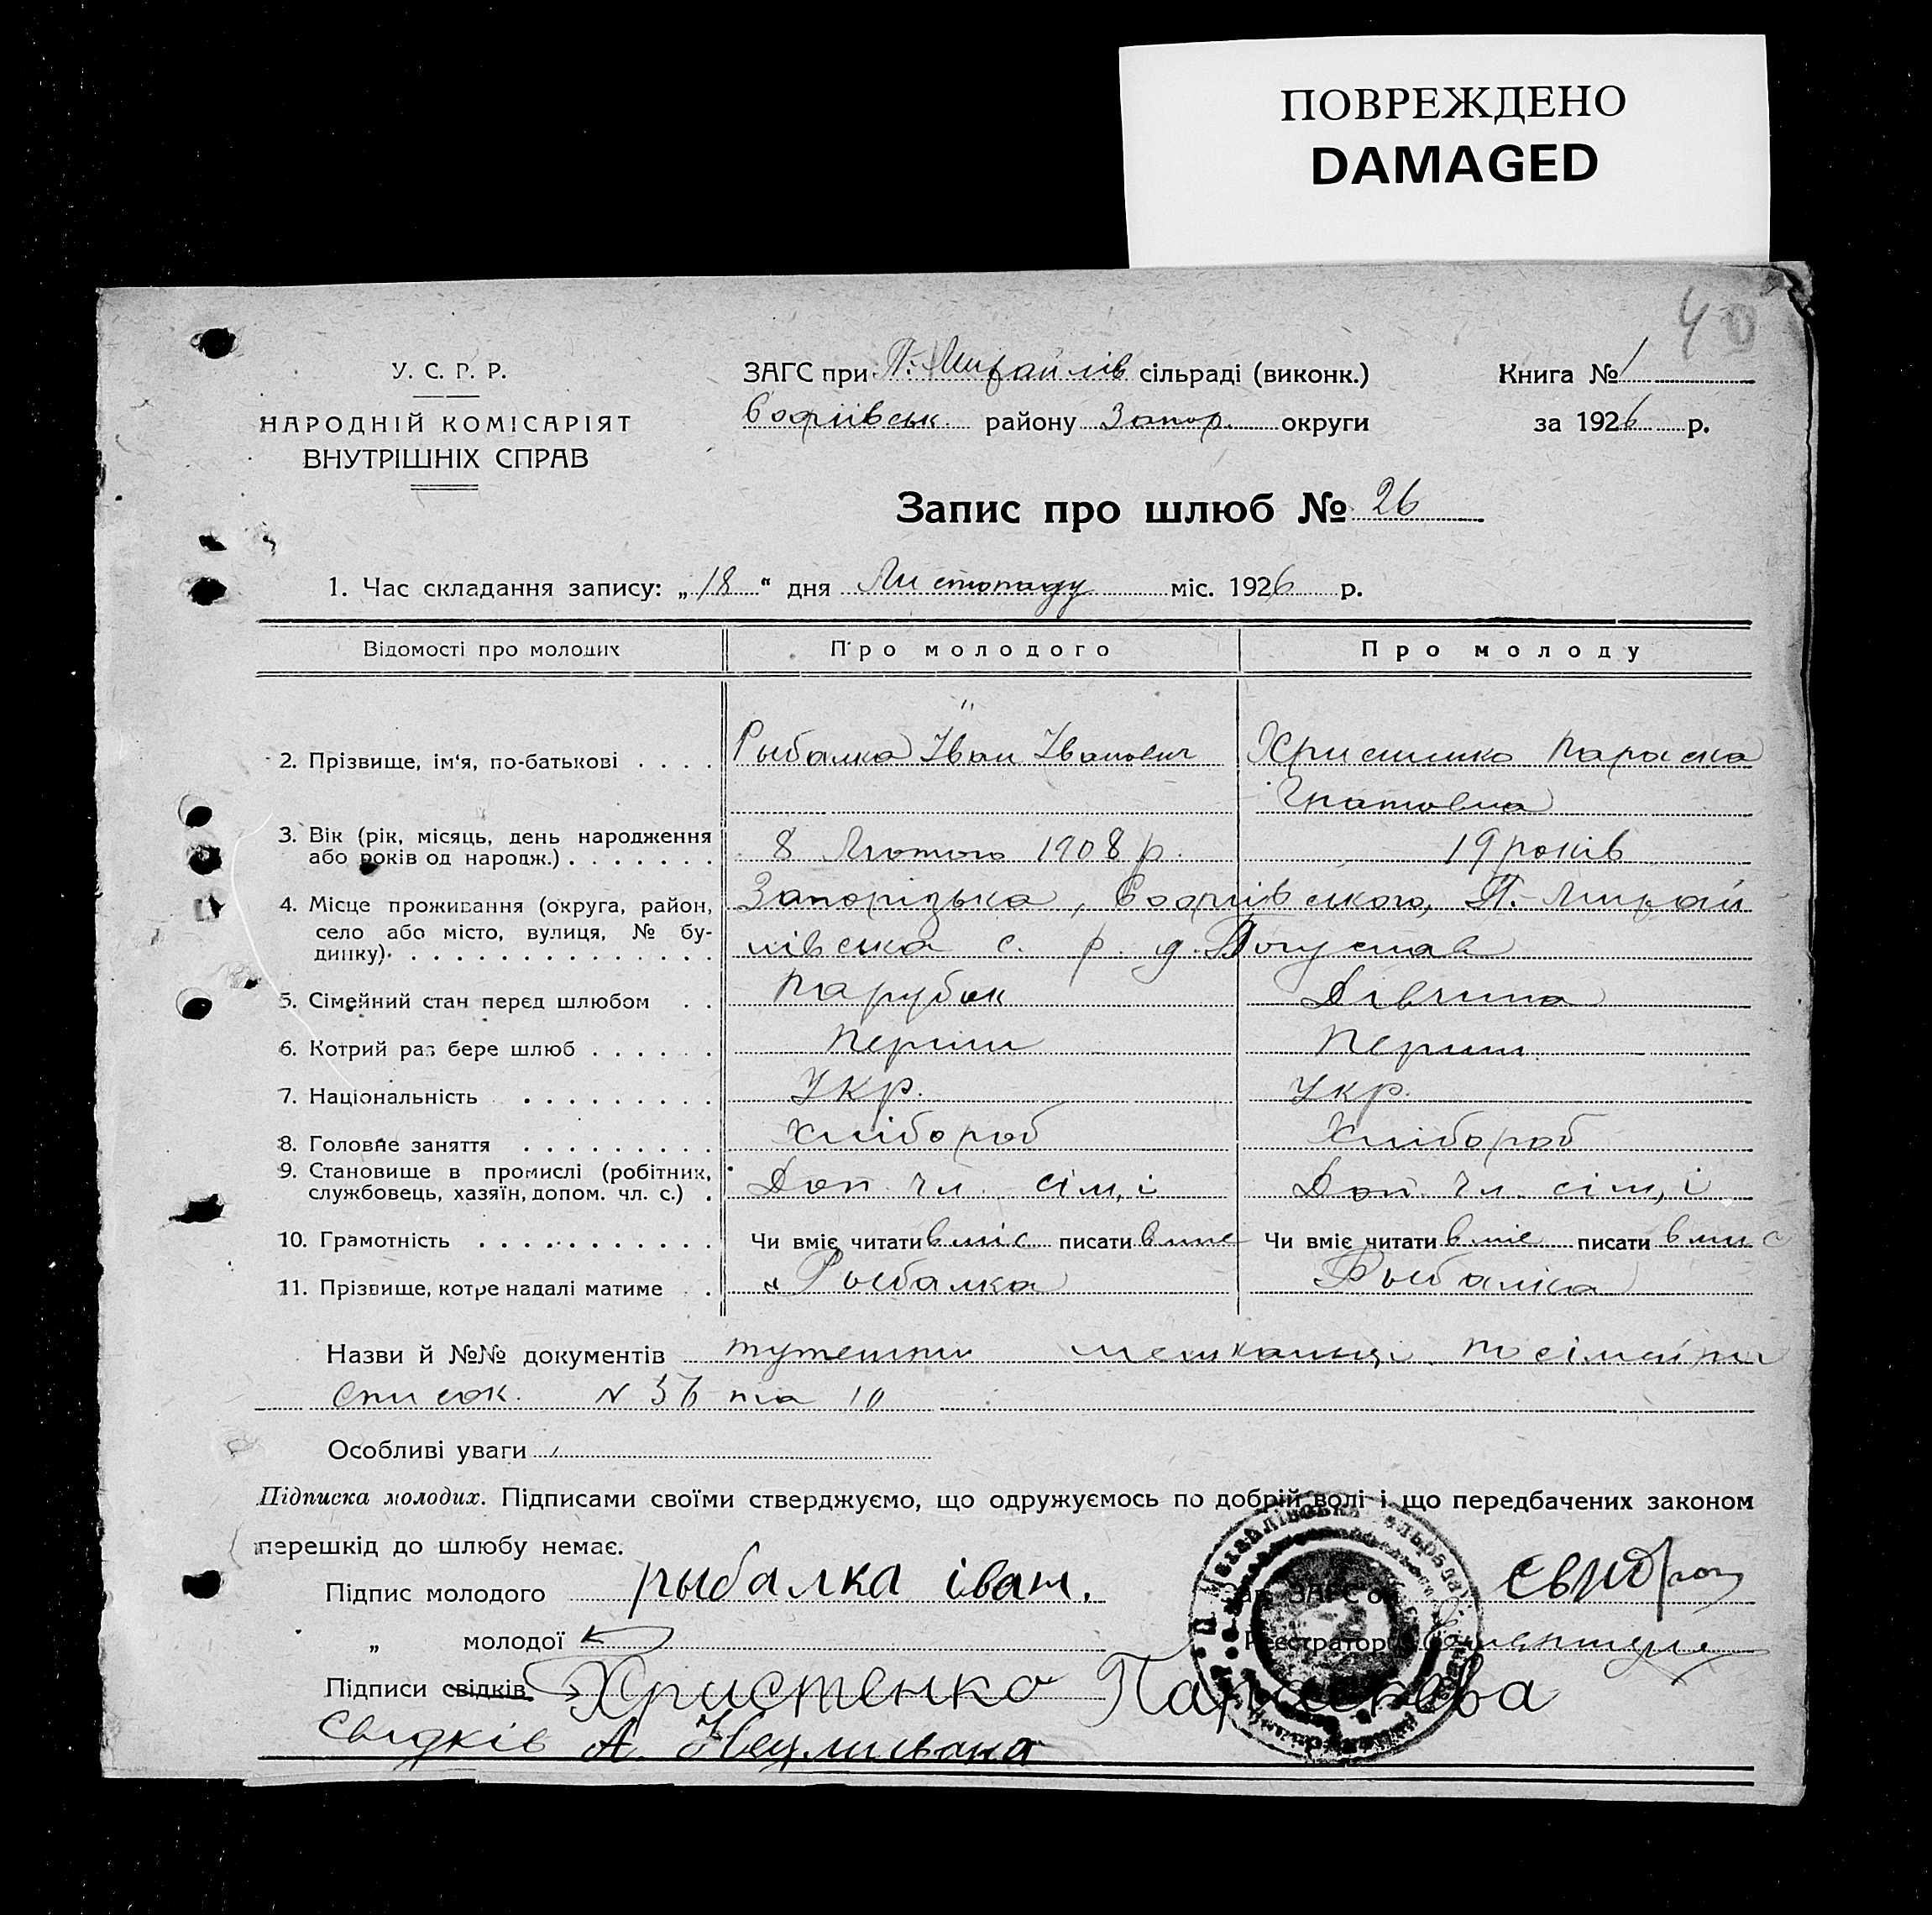 ПОВРЕЖДЕНО
DAMAGED
40
У. С. Р. Р.
НАРОДНІЙ КОМІСАРІЯТ
ВНУТРІШНІХ СПРАВ
ЗАГС при П. Михайлів сільраді (виконк.)
Софіївськ. району Запор. округи
Книга № 1
за 1926 р.
Запис про шлюб № 26
1. Час складання запису: „18“ дня Листопаду міс. 1926 р.
Відомості про молодих Про молодого Про молоду
2. Прізвище, ім‘я, по-батькові . . . . Рыбалка Іван Іванович Христенко Параска
Гнатовна
3. Вік (рік, місяць, день народження
або років од народж.) . . . . . . . 8 Лютого 1908 р. 19 років
4. Місце проживання (округа, район,
село або місто, вулиця, № бу-
динку) . . . . . . . . . . . . . . .
Запорізька, Софіівського, П.-Михай
лівська с. р. д.
5. Сімейний стан перед шлюбом . . Парубок Дівчина
6. Котрий раз бере шлюб . . . . . . Перши Перши
7. Національність . . . . . . . . . Укр. Укр.
8. Головне заняття . . . . . . . . . Хлібороб Хлібороб
9. Становище в промислі (робітник,
службовець, хазяїн, допом. чл. с.) . Доп. чл. сім,і Доп. чл. сім,і
10. Грамотність . . . . . . . . . . . Чи вміє читати вміє писати вміє Чи вміє читати вміє писати вміє
11. Прізвище, котре надалі матиме . . Рыбалка Рыбалка
Назви й №№ документів тутешни мешканци по сімейни
список. N 36 та 10
Особливі уваги
Підписка молодих. Підписами своїми стверджуємо, що одружуємось по добрій волі і що передбачених законом
перешкід до шлюбу немає.
Підпис молодого рыбалка іван.
Зав. ЗАГС'ом
„ молодої
Реєстратор
Підписи свідків Христенко
Свідків А.